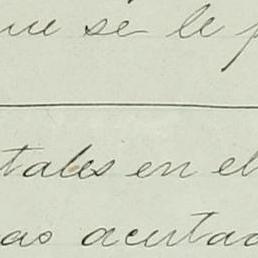 ue se le p
tales en el
as acertad